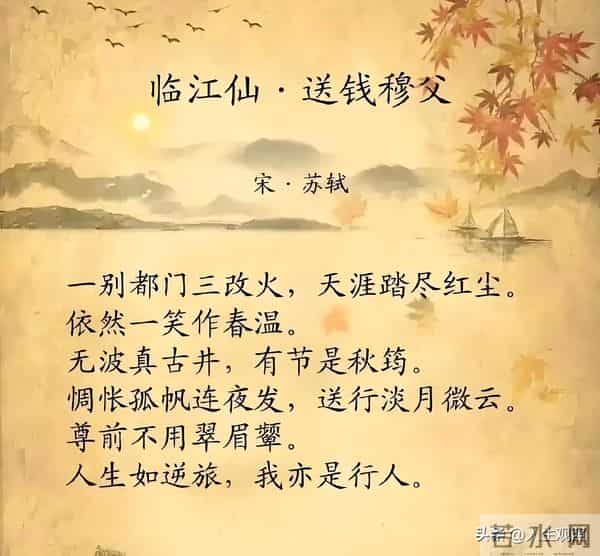 临江仙·送钱穆父
宋·苏轼
一别都门三改火，天涯踏尽红尘。
依然一笑作春温。
无波真古井，有节是秋筠。
惆怅孤帆连夜发，送行淡月微云。
尊前不用翠眉颦。
人生如逆旅，我亦是行人。
头条@人生观照
若水网